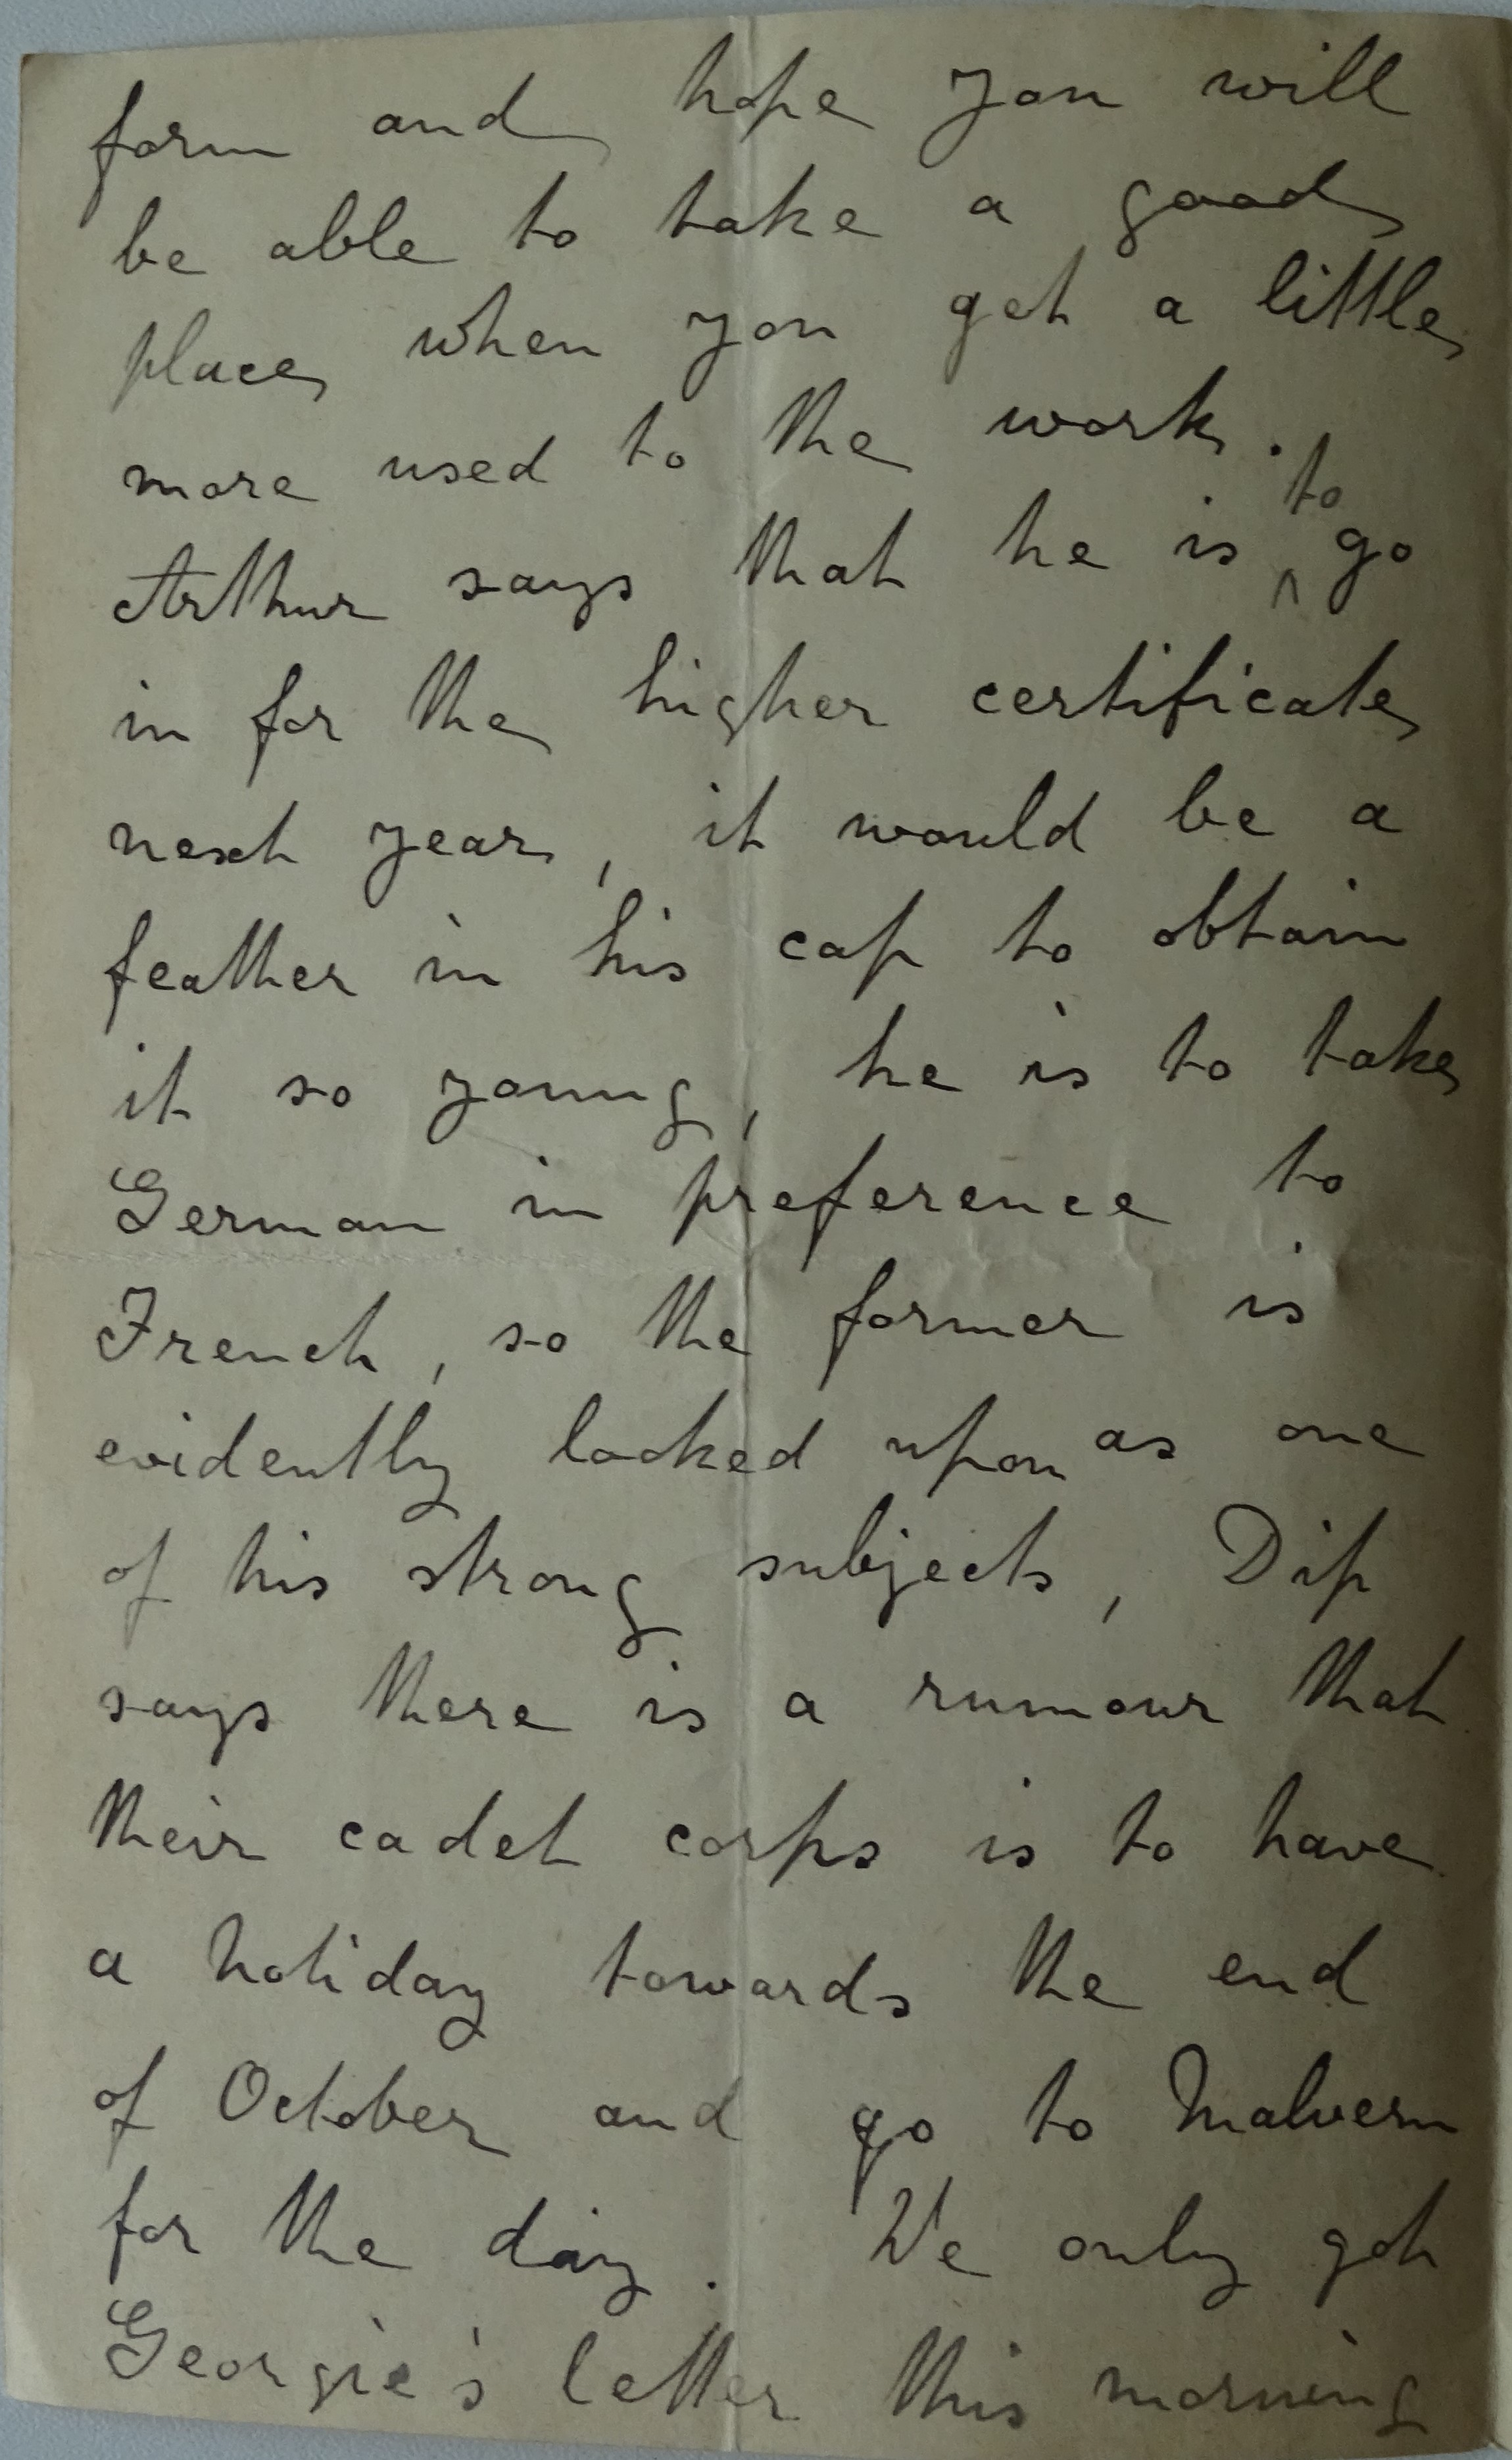 form and hope you will
be able to take a good
place when you get a little
more used to the work.
Arthur says that he is to go
in for the higher certificate
next year, it would be a
feather in his cap to obtain
it so young, he is to take
German in preference to
French, so the former is
evidently looked upon as one
of his strong subjects, Dip
says there is a rumour that
their cadet corps is to have
a holiday towards the end
of October and go to Malvern
for the day. We only got
Georgie's letter this morning